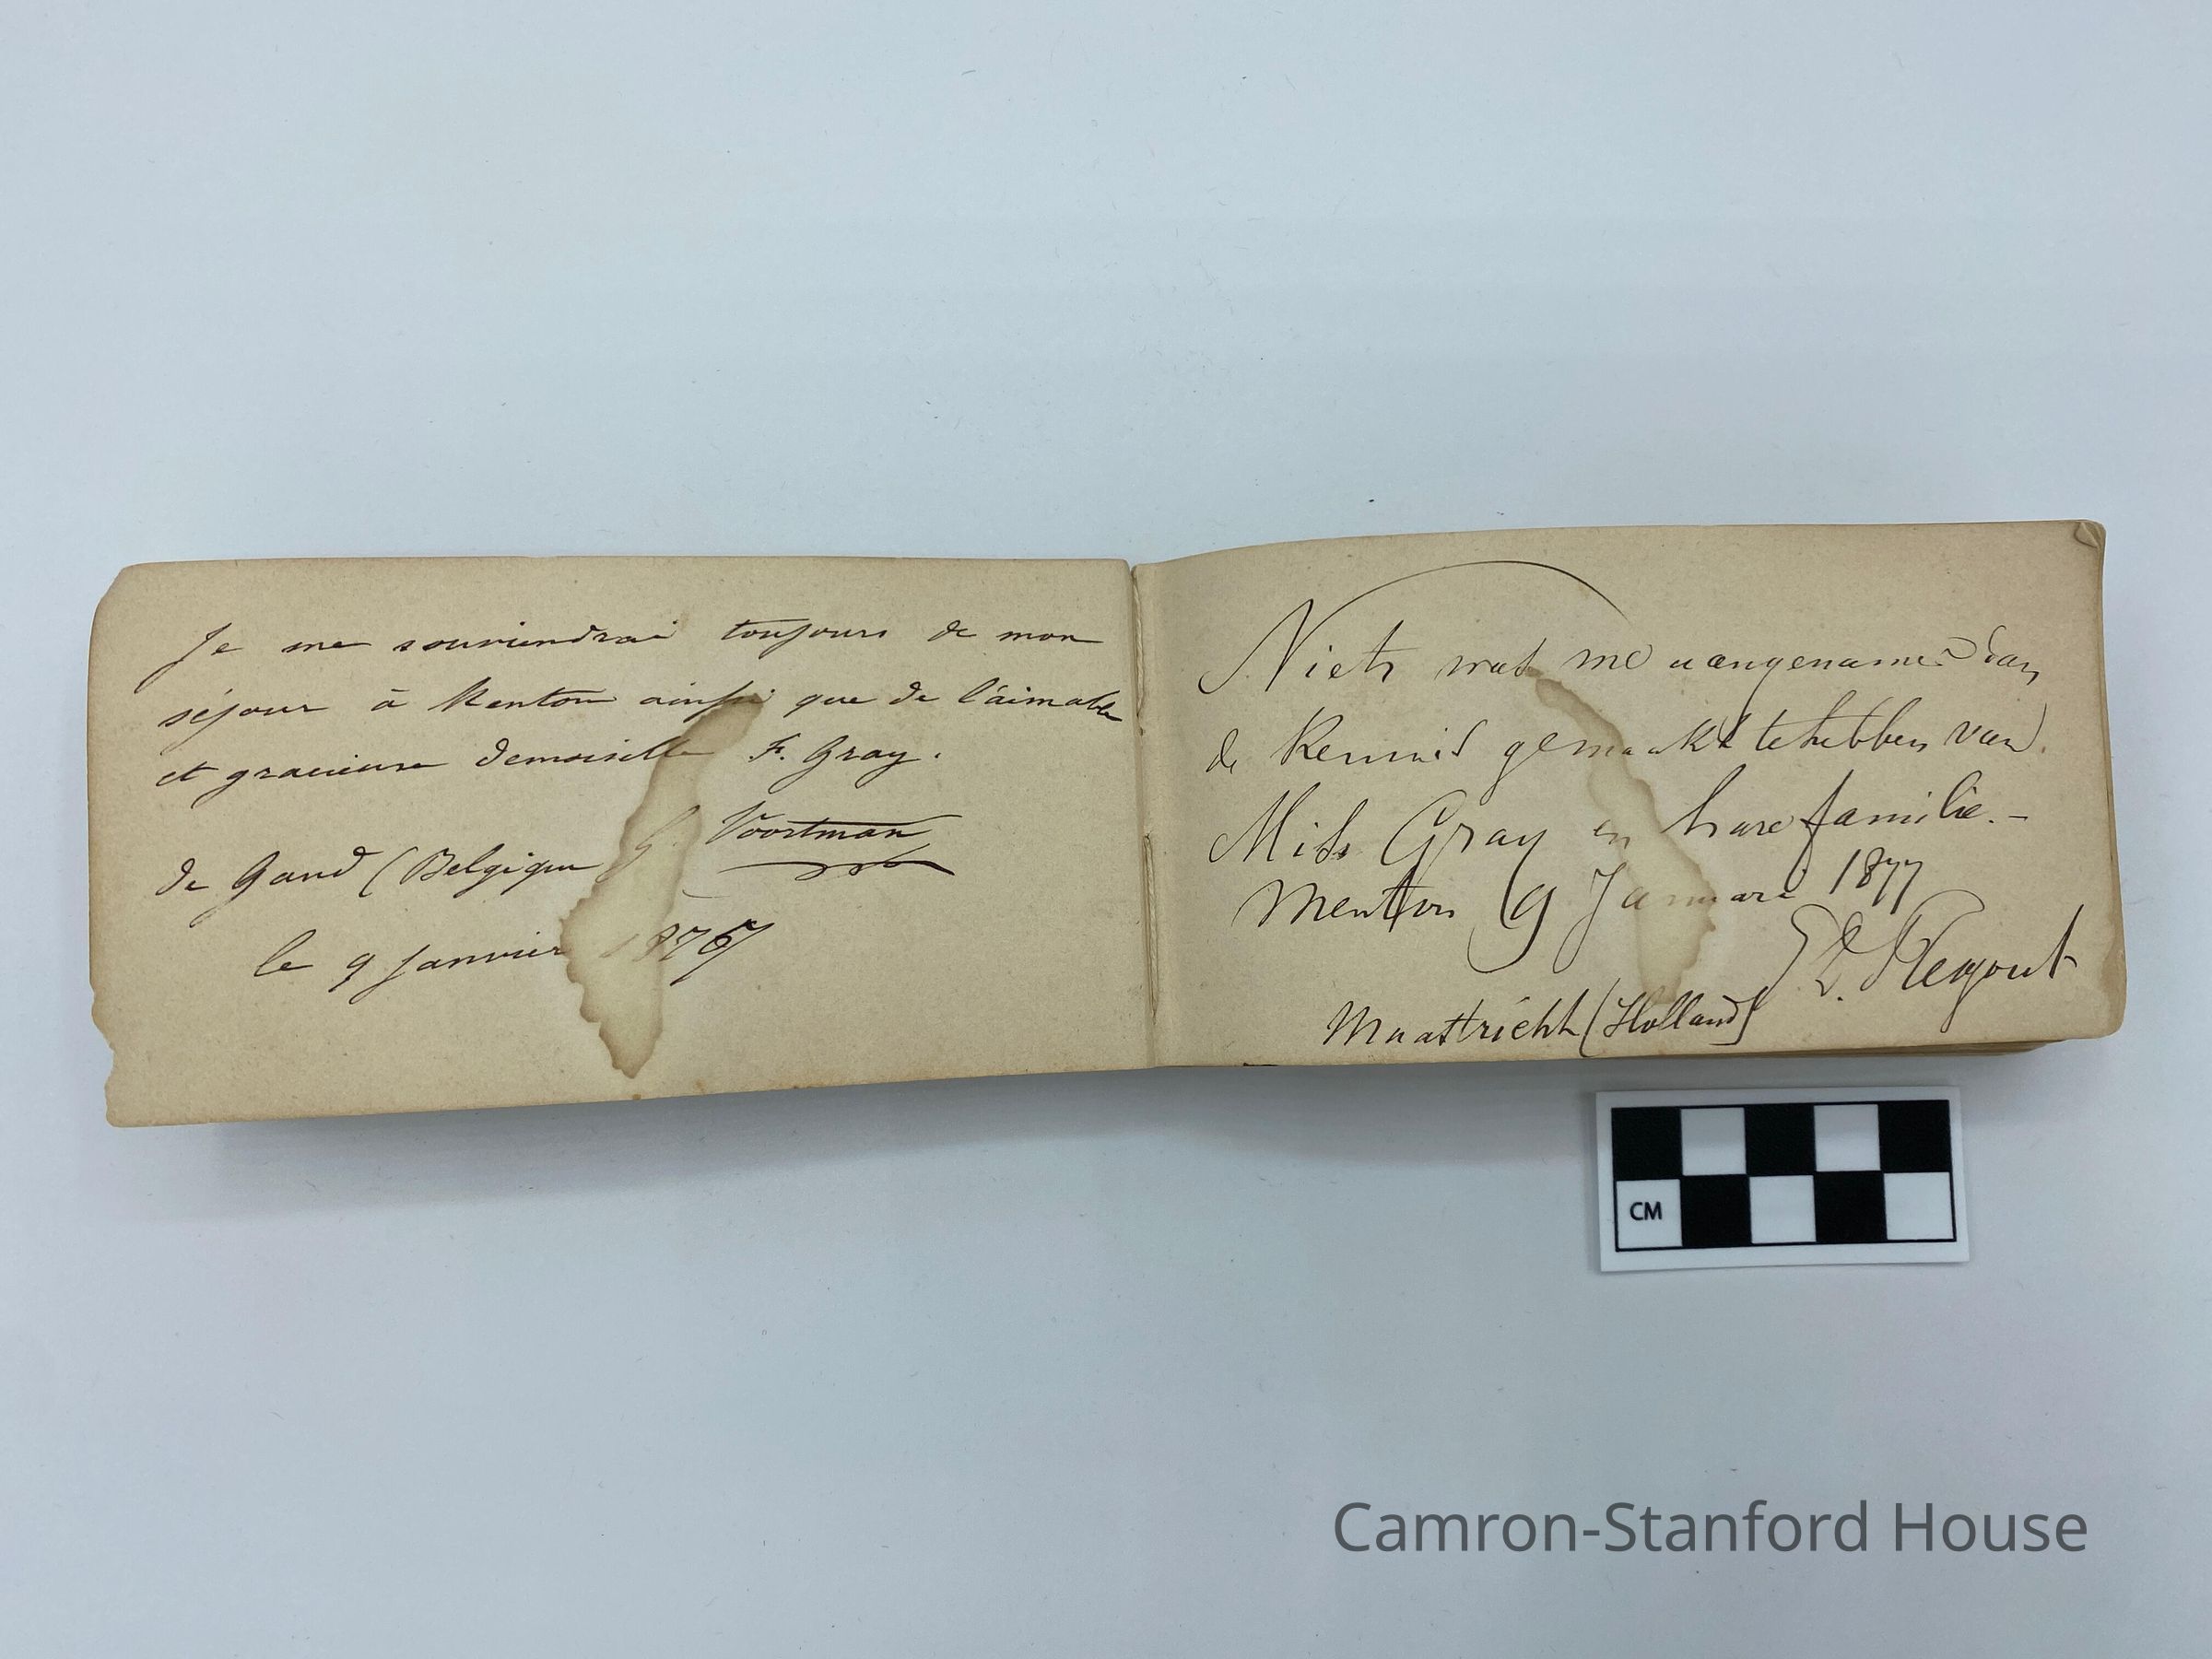 Je me souviendrai toujours de mon
séjour à Menton ainsi que de l'aimable
et gracieuse demoiselle F. Gray.
G. Voortman
de Gand (Belgique
le 9 Janvier 1877
Niets was me aangenamer dan
de Kennis gemaakt te hebben van
Miss Gray en hare familie.-
Menton 9 Januari 1877
Regout
Maastricht (Holland)
CM
Camron-Stanford House